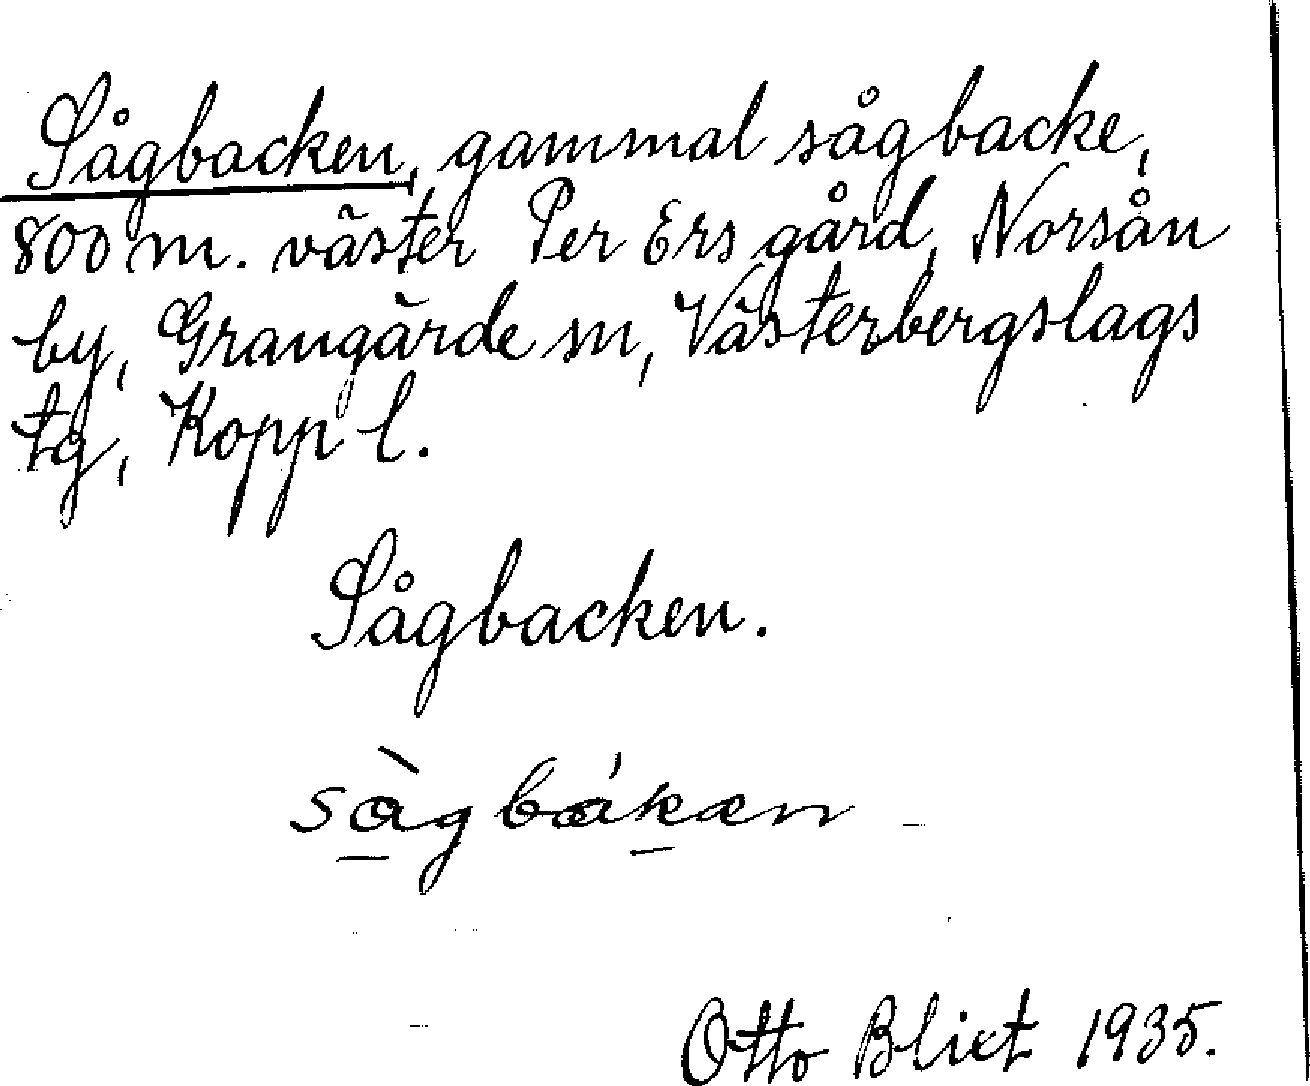 Sågbacken, gammal sågbacke,
800 m. väster Per Ers gård, Norsån
by, Grangärde sn, Västerbergslags
tg, Kopp l.
Sågbacken.
sàgbákæn
Otto Blixt 1935.